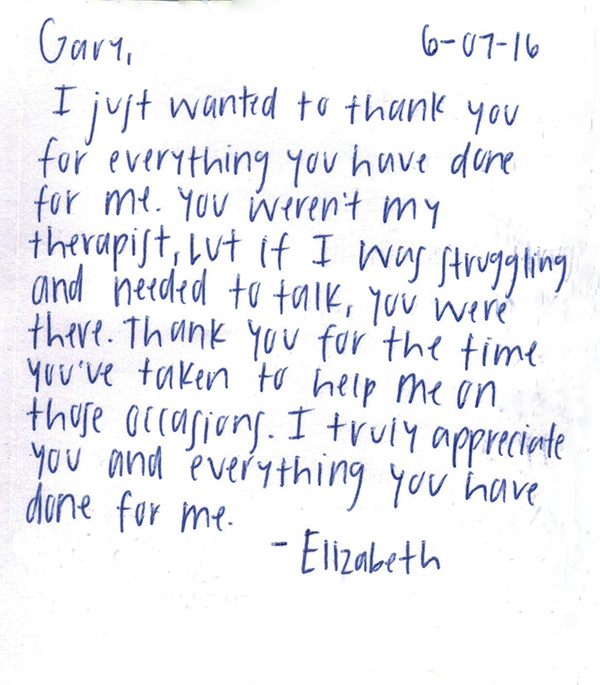 Gary, 6-07-16
I just wanted to thank you
for everything you have done
for me. You weren't my
therapist, but if I was struggling
and needed to talk, you were
there. Thank you for the time
you've taken to help me on
those occasions. I truly appreciate
you and everything you have
done for me.
- Elizabeth